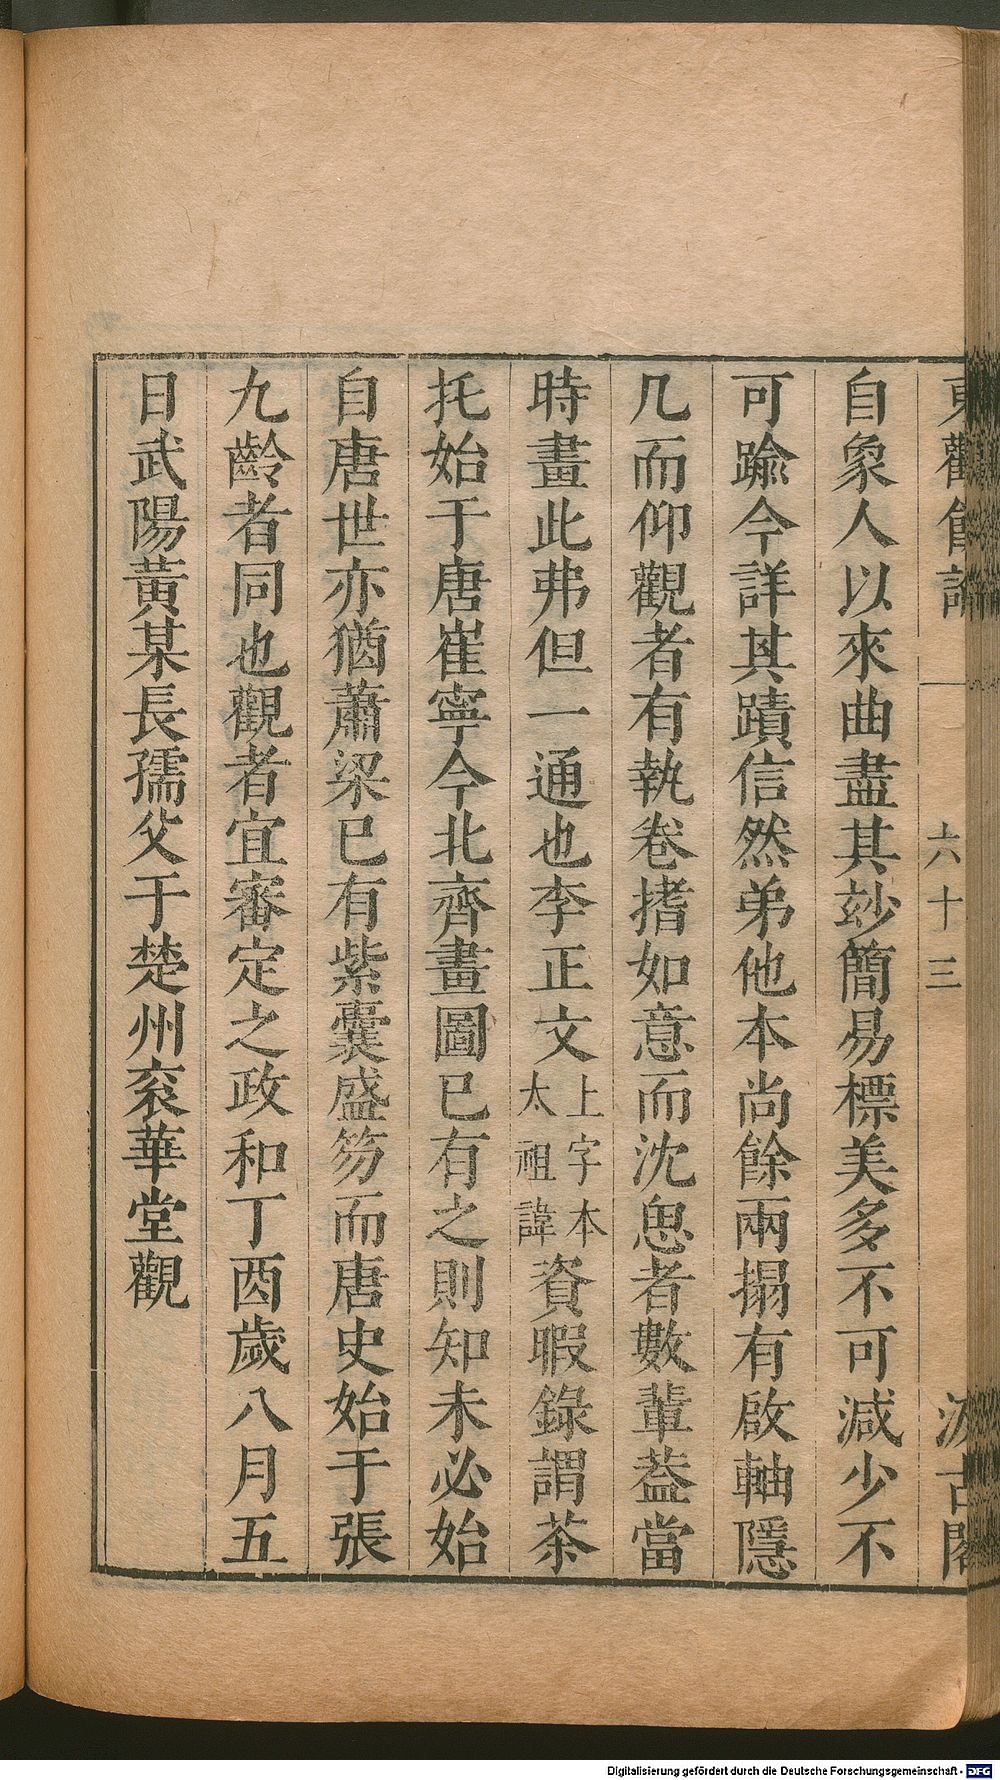 東觀餘論 一 六十三 汲古閣
自象人以來曲盡其玅簡易標美多不可減少不
可踰今詳其蹟信然弟他本尚餘兩搨有啟軸隱
几而仰觀者有執卷搘如意而沈思者數輩葢當
時畫此弗但一通也李正文上字本太祖諱資暇錄謂茶
托始于唐崔寧今北齊畫圖已有之則知未必始
自唐世亦猶蕭梁已有紫囊盛笏而唐史始于張
九齡者同也觀者宜審定之政和丁酉歲八月五
日武陽黃某長孺父于楚州衮華堂觀
Digitalisierung gefördert durch die Deutsche Forschungsgemeinschaft - DFG